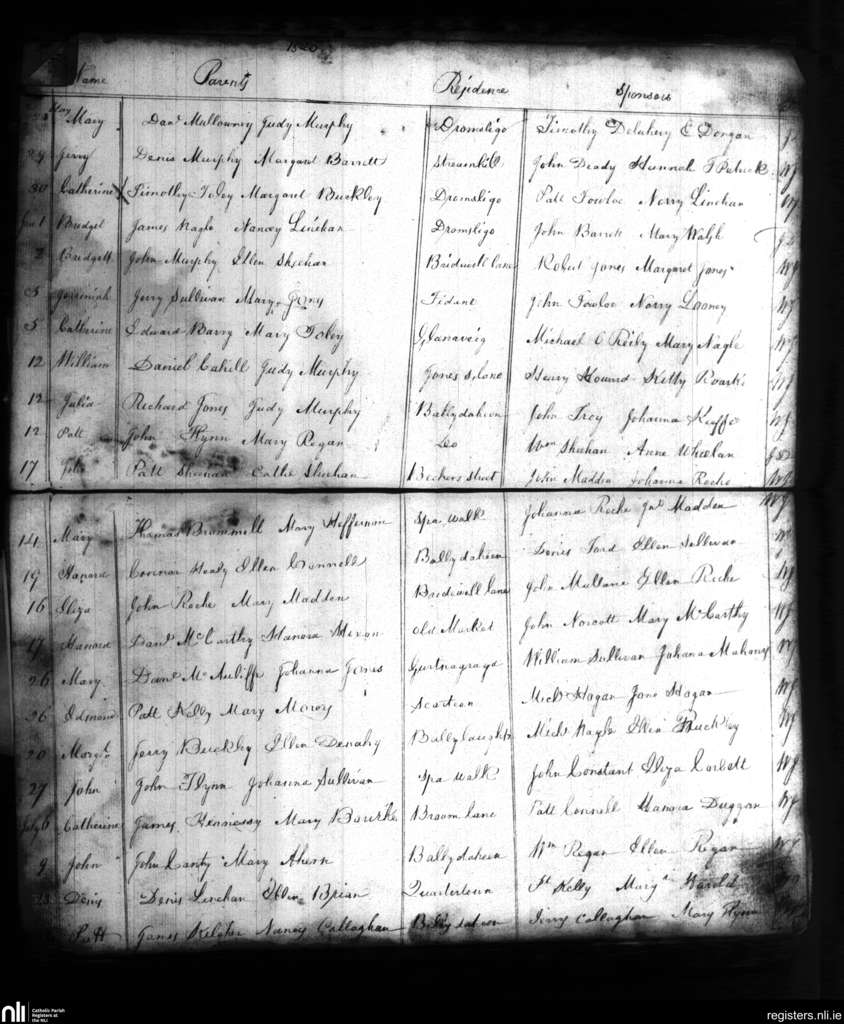 1820
Name Parents Residence Sponsors
May
Mary Danl Mullowney Judy Murphy Dromsligo Timothy Deluhery C Dorgan
29 Jerry Denis Murphy Margaret Barrett John Deady Hannah
30 Catherine Timothy Foley Margaret Buckley Dromsligo Patt Fowloe Norry Linehan
June 1 Bridget James Nagle Nancy Linehan Dromsligo John Barrett Mary Walsh
2 Bridgett John Murphy Ellen Sheehan Bridwell lane Robert Jones Margaret Jones WJ
3 Jeremiah Jerry Sullivan Mary Jones John Fowloe Norry Looney WJ
5 Catherine Edward Barry Mary Foley Michael O Reily Mary Nagle WJ
12 William Daniel Cahill Judy Murphy Jones's lane Henry Howard Kitty Roark WJ
12 Julia Richard Jones Judy Murphy Ballydaheen John Troy Johanna Keeffe WJ
12 Patt John Flynn Mary Regan Do Wm Sheehan Anne Whelan
17 Patt Sheehan Cathe Sheehan Beechers Street John Madden Johanna Roche WJ
14 Mary Thomas Brommell Mary Heffernan Spa Walk Johanna Roche Jno Madden WJ
19 Hanora Connor Healy Ellen Connell Ballydaheen Denis Ford Ellen Sullivan
16 Eliza John Roche Mary Madden Bridewell lane John Mullane Ellen Roche WJ
17 Hanora Danl McCarthy Hanora Nixon Old Market John Norcott Mary McCarthy WJ
26 Mary Danl McAuliffe Johanna Jones Gurtnagraga William Sullivan Johana Mahony WJ
26 Edmond Patt Kelly Mary Scarteen Michl Hagan Jane Hagan WJ
20 Margt Jerry Buckley Ellen Denahy Michl Nagle Ellen Buckley WJ
27 John John Flynn Johanna Sullivan Spa Walk John Constant Eliza Corbett WJ
July 6 Catherine James Hennessy Mary Bourke Broom lane Patt Connell Hanora Duggan WJ
9 John John Canty Mary Ahern Ballydaheen Wm Regan Ellen Regan
Denis Denis Linehan Ellen Brian Quartertown Kelly Margt Harold
Patt James Nancy Callaghan Ballydaheen Jerry Callaghan Mary Flynn
nli Catholic Parish
Registers at
the NLI
registers.nli.ie